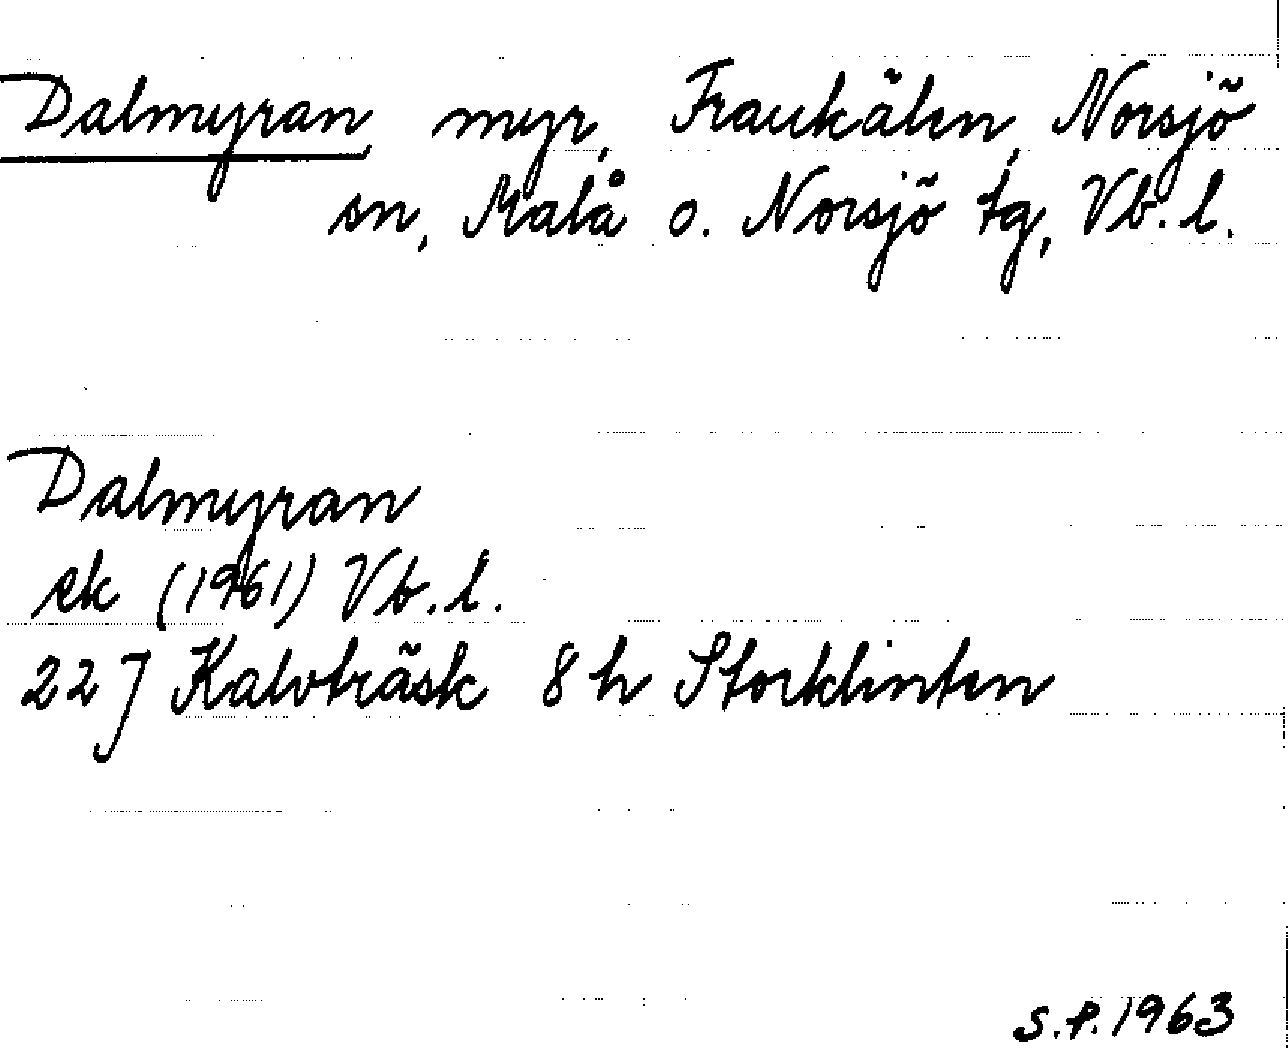 Dalmyran, myr, Fraukälen, Norsjö
sn, Malå o. Norsjö tg, Vb. l.
Dalmyran
ek (1961) Vb. l.
22 J Kalvträsk 8 h Storklinten
S.P. 1963